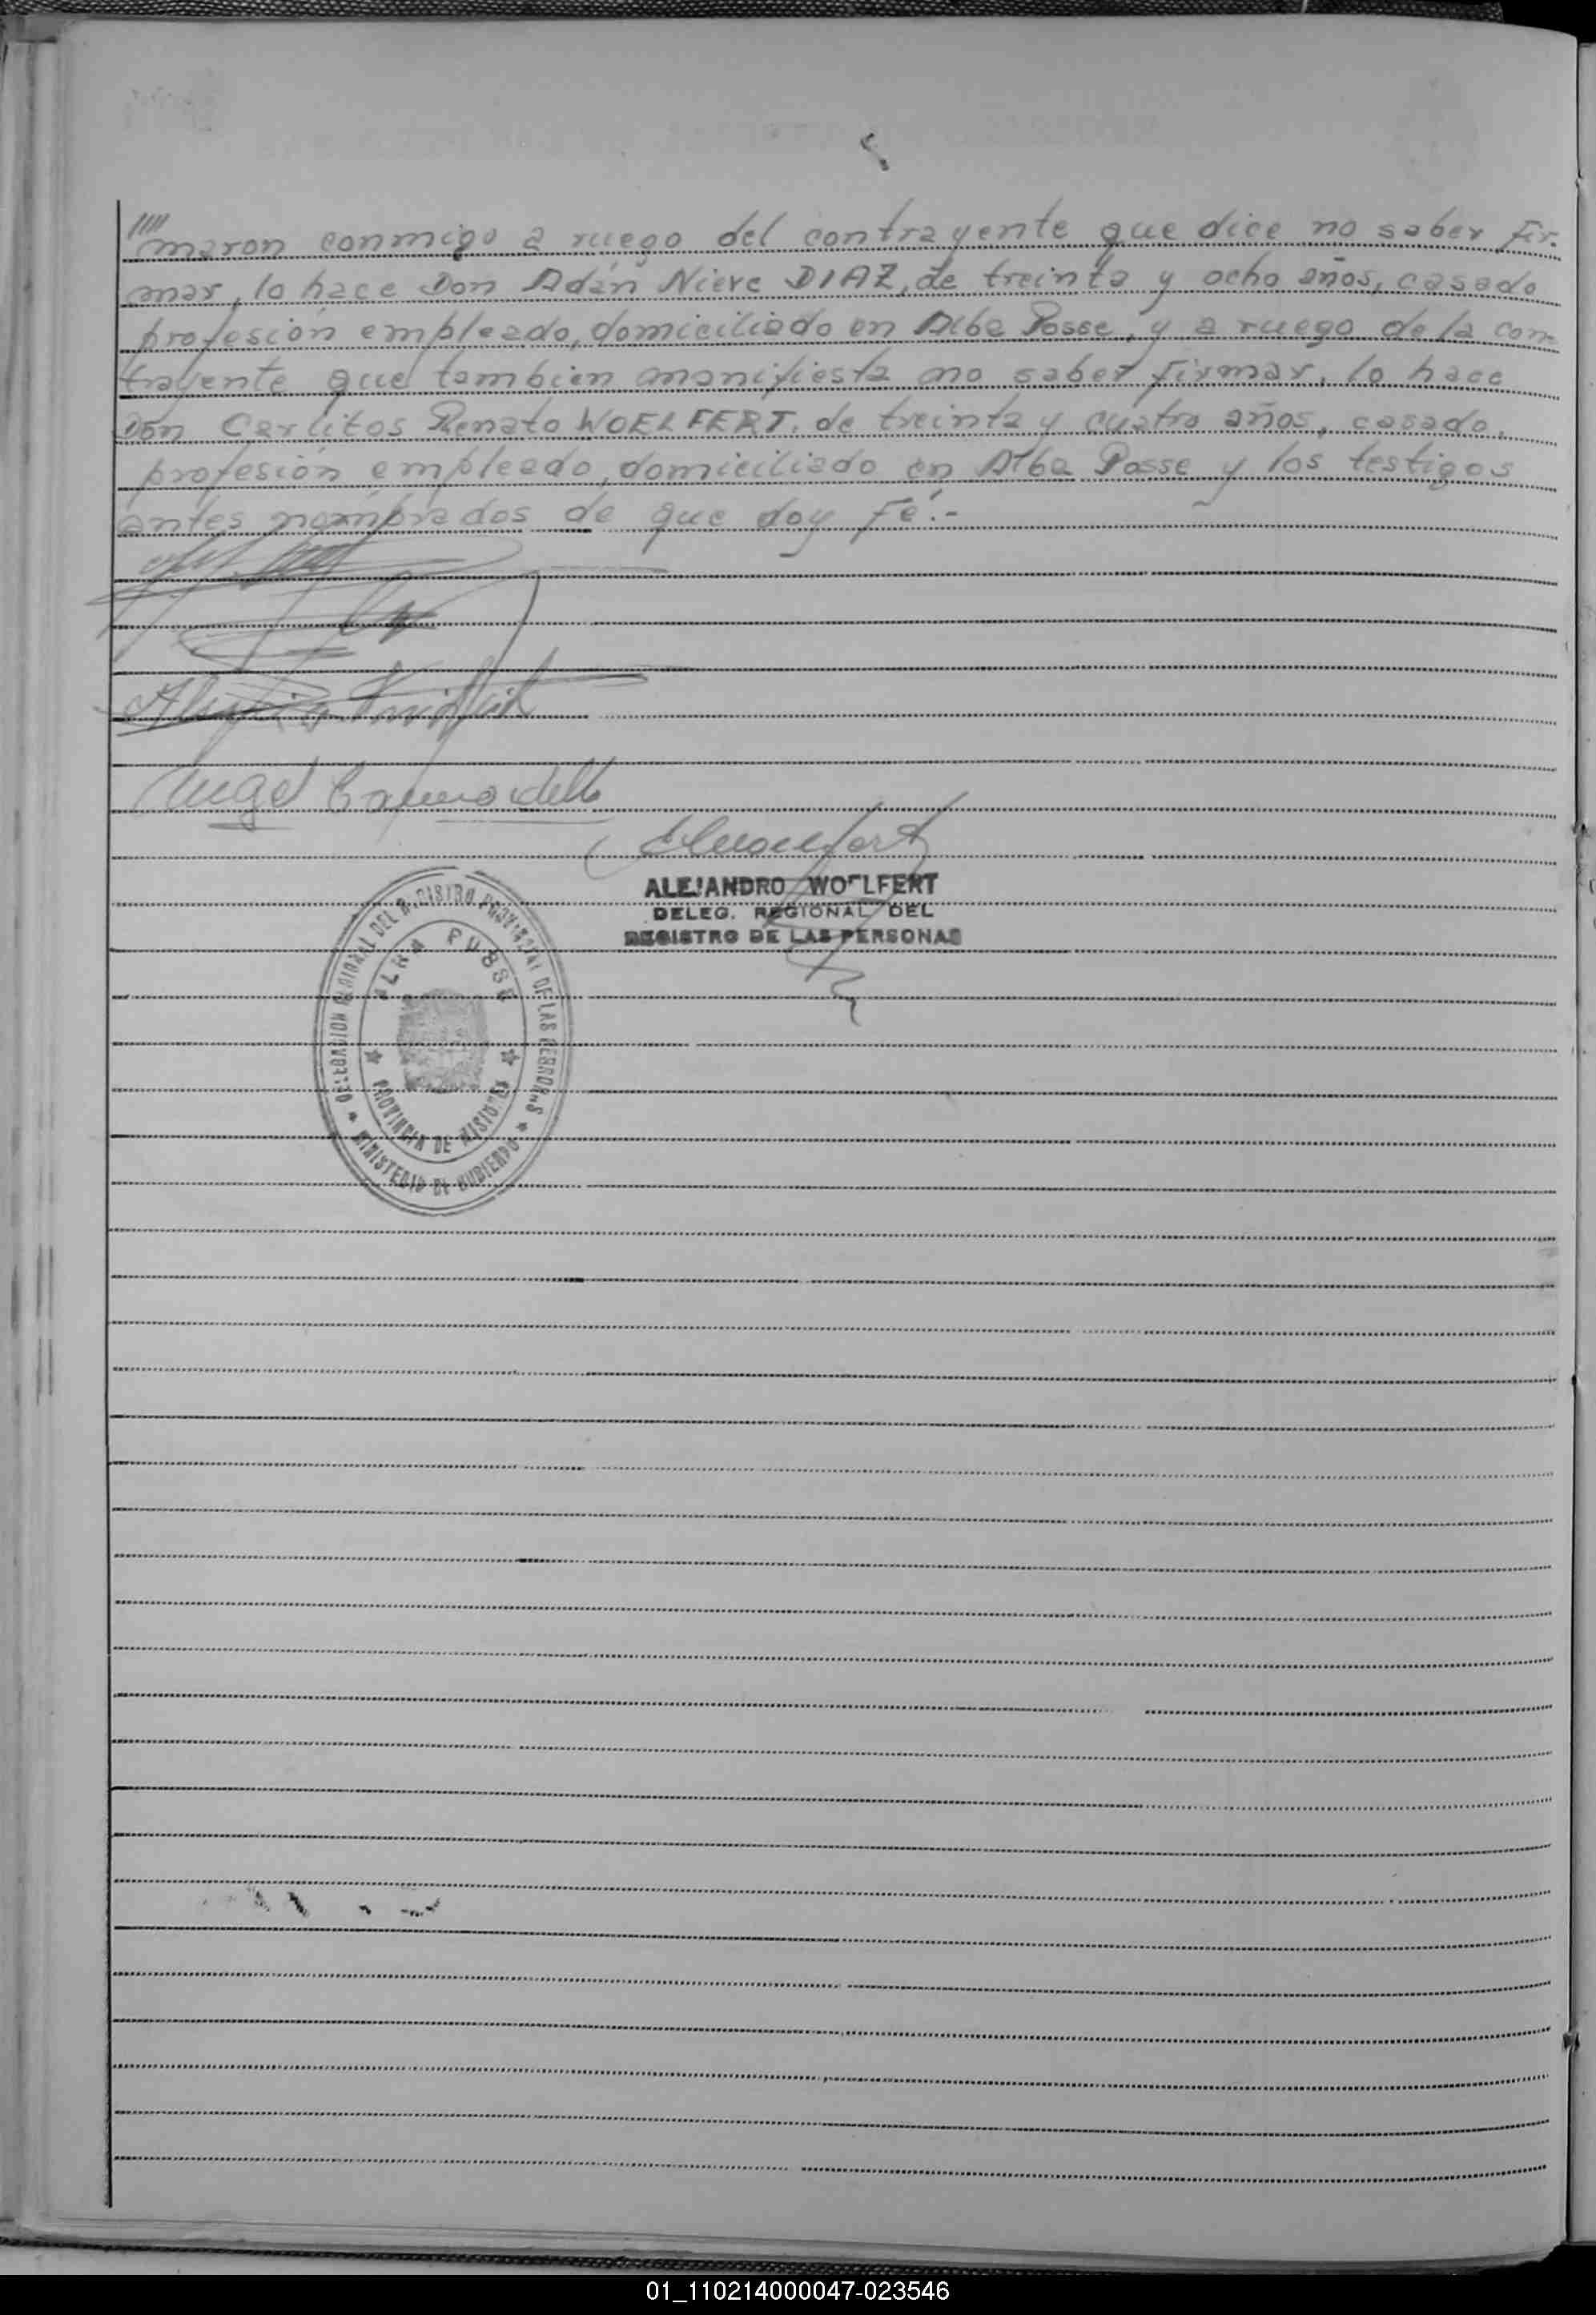 //// maron conmigo a ruego del contrayente que dice no saber fir-
mar, lo hace Don Adán Nieve DIAZ, de treinta y ocho años, casado
profesión empleado, domiciliado en Alba Posse, y a ruego de la con-
trayente que tambien manifiesta no saber firmar, lo hace
Don Carlitos Renato WOELFERT. de treinta y cuatro años, casado,
profesión empleado, domiciliado en Alba Posse y los testigos
antes nombrados de que doy Fé.-
Angel
ALEJANDRO WOELFERT
DELEG. REGIONAL DEL
REGISTRO DE LAS PERSONAS
DELEGACION REGIONAL DEL REGISTRO PROVINCIAL DE LAS PERSONAS
MINISTERIO DE GOBIERNO
ALBA POSSE
PROVINCIA DE MISIONES
01_110214000047-023546